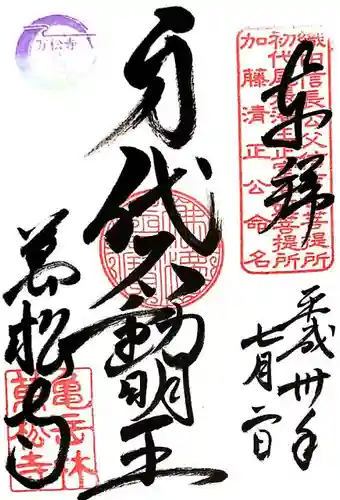 奉拝
織田信長公父菩提所
初代尾張藩主正室菩提所
加藤清正公命名
平成卅年
七月二日
身代不動明王
万松寺
萬松寺
亀岳林
萬松寺